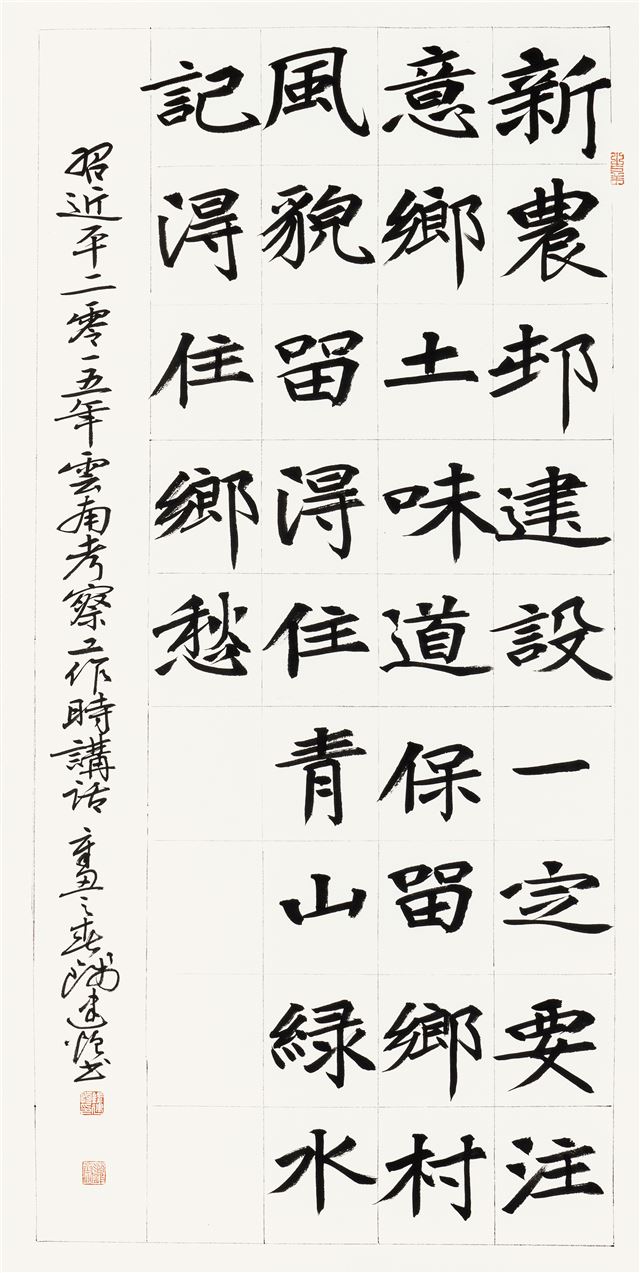 新農邨建設一定要注
意鄉土味道保留鄉村
風貌留得住青山緑水
記得住鄉愁
習近平二零一五年雲南考察工作時講話